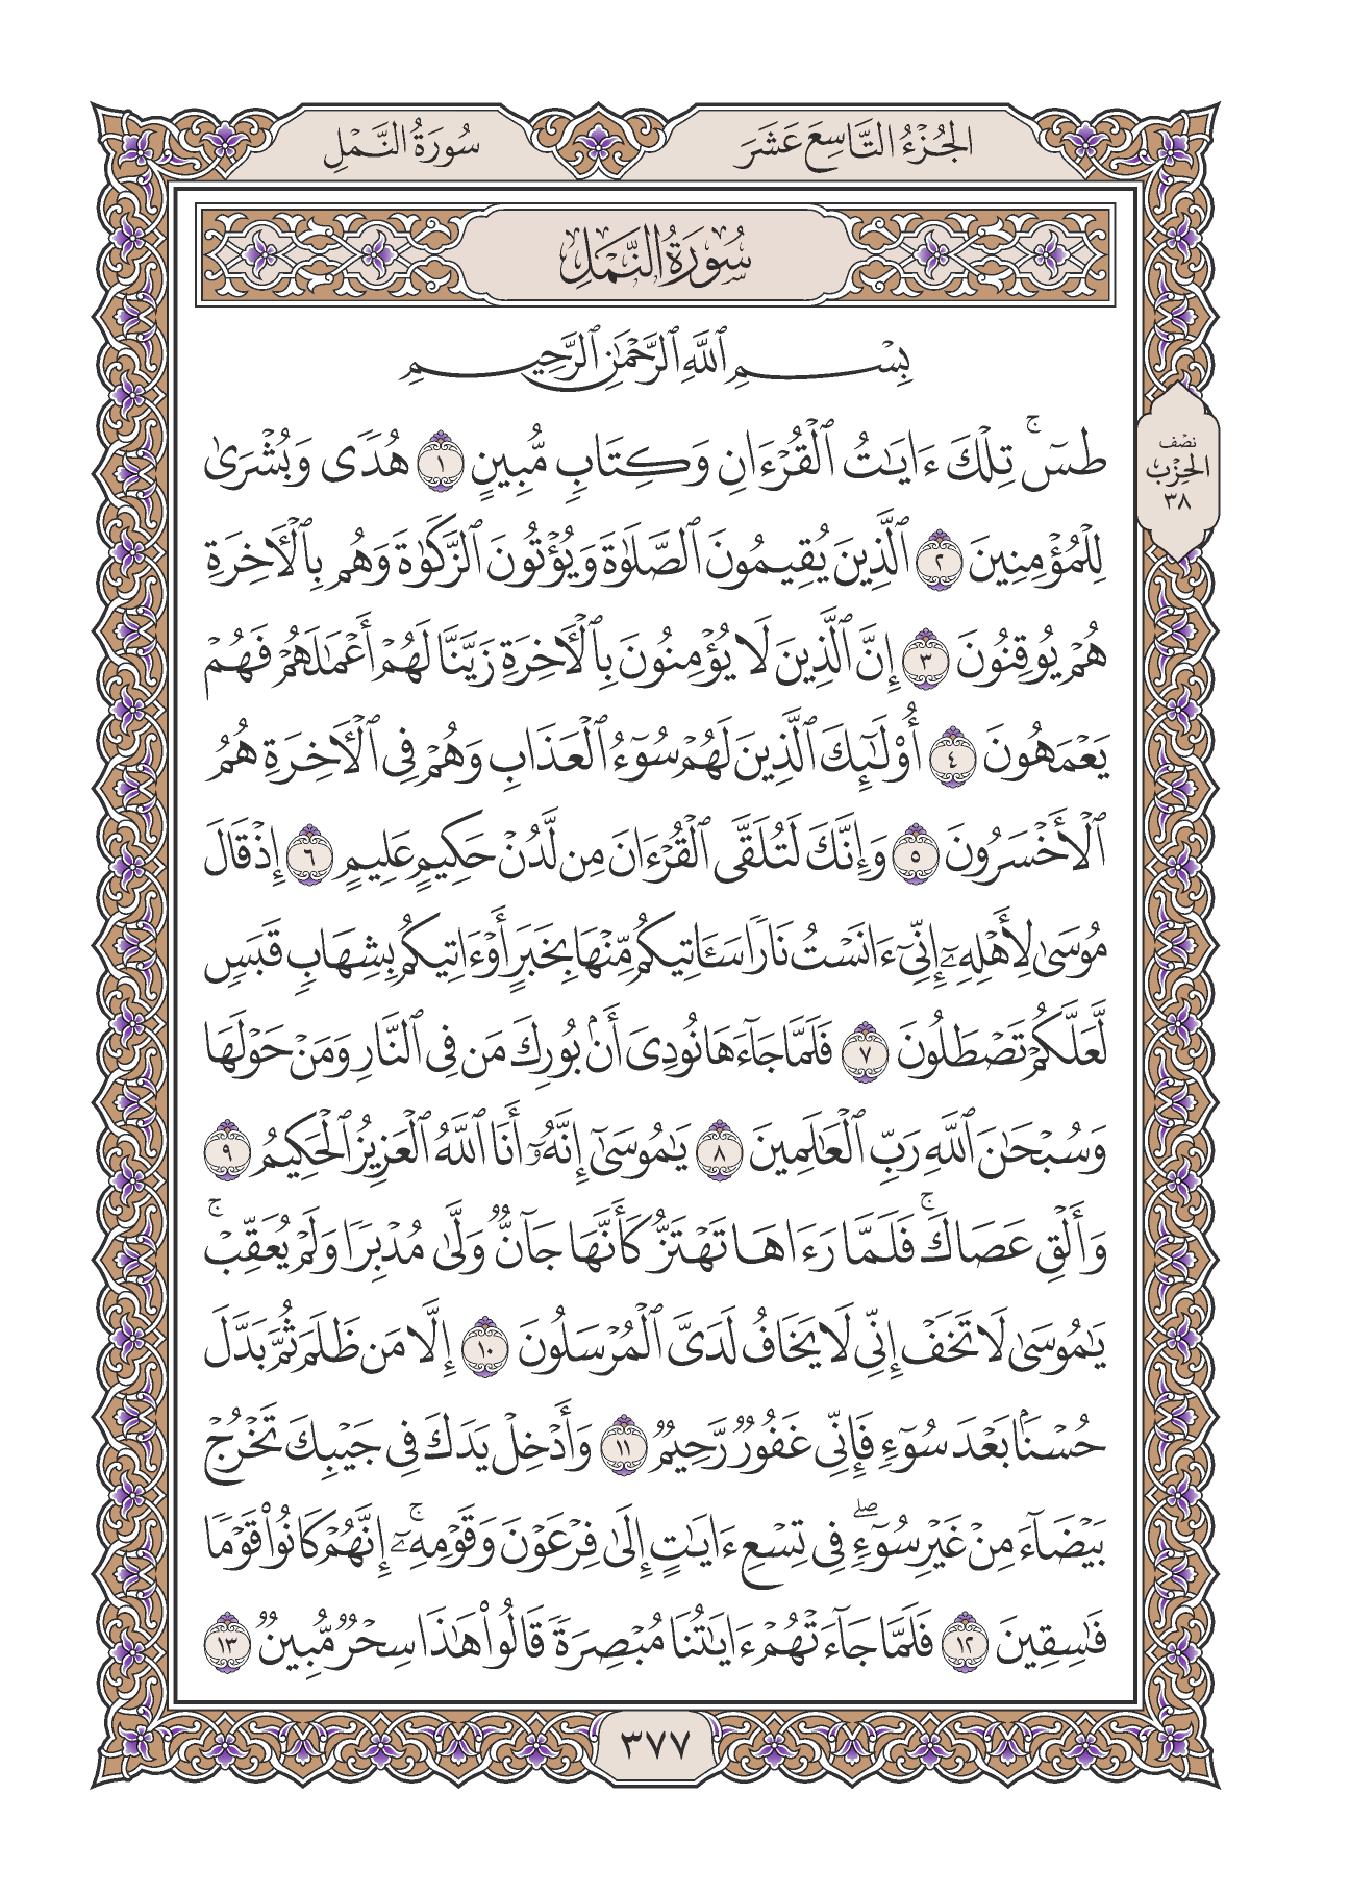 الجُزْءُ التَّاسِعَ عَشَرَ
سُورَةُ النَّمْلِ
سُورَةُ النَّمْلِ
بِسْمِ ٱللَّهِ ٱلرَّحْمَٰنِ ٱلرَّحِيمِ
نصف
الحِزْب
٣٨
طسٓۚ تِلْكَ ءَايَٰتُ ٱلْقُرْءَانِ وَكِتَابٍ مُّبِينٍ ١ هُدًى وَبُشْرَىٰ
لِلْمُؤْمِنِينَ ٢ ٱلَّذِينَ يُقِيمُونَ ٱلصَّلَوٰةَ وَيُؤْتُونَ ٱلزَّكَوٰةَ وَهُم بِٱلْأٓخِرَةِ
هُمْ يُوقِنُونَ ٣ إِنَّ ٱلَّذِينَ لَا يُؤْمِنُونَ بِٱلْأٓخِرَةِ زَيَّنَّا لَهُمْ أَعْمَٰلَهُمْ فَهُمْ
يَعْمَهُونَ ٤ أُو۟لَٰٓئِكَ ٱلَّذِينَ لَهُمْ سُوٓءُ ٱلْعَذَابِ وَهُمْ فِى ٱلْأٓخِرَةِ هُمُ
ٱلْأَخْسَرُونَ ٥ وَإِنَّكَ لَتُلَقَّى ٱلْقُرْءَانَ مِن لَّدُنْ حَكِيمٍ عَلِيمٍ ٦ إِذْ قَالَ
مُوسَىٰ لِأَهْلِهِۦٓ إِنِّىٓ ءَانَسْتُ نَارًا سَـَٔاتِيكُم مِّنْهَا بِخَبَرٍ أَوْ ءَاتِيكُم بِشِهَابٍ قَبَسٍ
لَّعَلَّكُمْ تَصْطَلُونَ ٧ فَلَمَّا جَآءَهَا نُودِىَ أَنۢ بُورِكَ مَن فِى ٱلنَّارِ وَمَنْ حَوْلَهَا
وَسُبْحَٰنَ ٱللَّهِ رَبِّ ٱلْعَٰلَمِينَ ٨ يَٰمُوسَىٰٓ إِنَّهُۥٓ أَنَا ٱللَّهُ ٱلْعَزِيزُ ٱلْحَكِيمُ ٩
وَأَلْقِ عَصَاكَۚ فَلَمَّا رَءَاهَا تَهْتَزُّ كَأَنَّهَا جَآنٌّ وَلَّىٰ مُدْبِرًا وَلَمْ يُعَقِّبْۚ
يَٰمُوسَىٰ لَا تَخَفْ إِنِّى لَا يَخَافُ لَدَىَّ ٱلْمُرْسَلُونَ ١٠ إِلَّا مَن ظَلَمَ ثُمَّ بَدَّلَ
حُسْنًۢا بَعْدَ سُوٓءٍ فَإِنِّى غَفُورٌ رَّحِيمٌ ١١ وَأَدْخِلْ يَدَكَ فِى جَيْبِكَ تَخْرُجْ
بَيْضَآءَ مِنْ غَيْرِ سُوٓءٍۖ فِى تِسْعِ ءَايَٰتٍ إِلَىٰ فِرْعَوْنَ وَقَوْمِهِۦٓۚ إِنَّهُمْ كَانُوا۟ قَوْمًا
فَٰسِقِينَ ١٢ فَلَمَّا جَآءَتْهُمْ ءَايَٰتُنَا مُبْصِرَةً قَالُوا۟ هَٰذَا سِحْرٌ مُّبِينٌ ١٣
٣٧٧